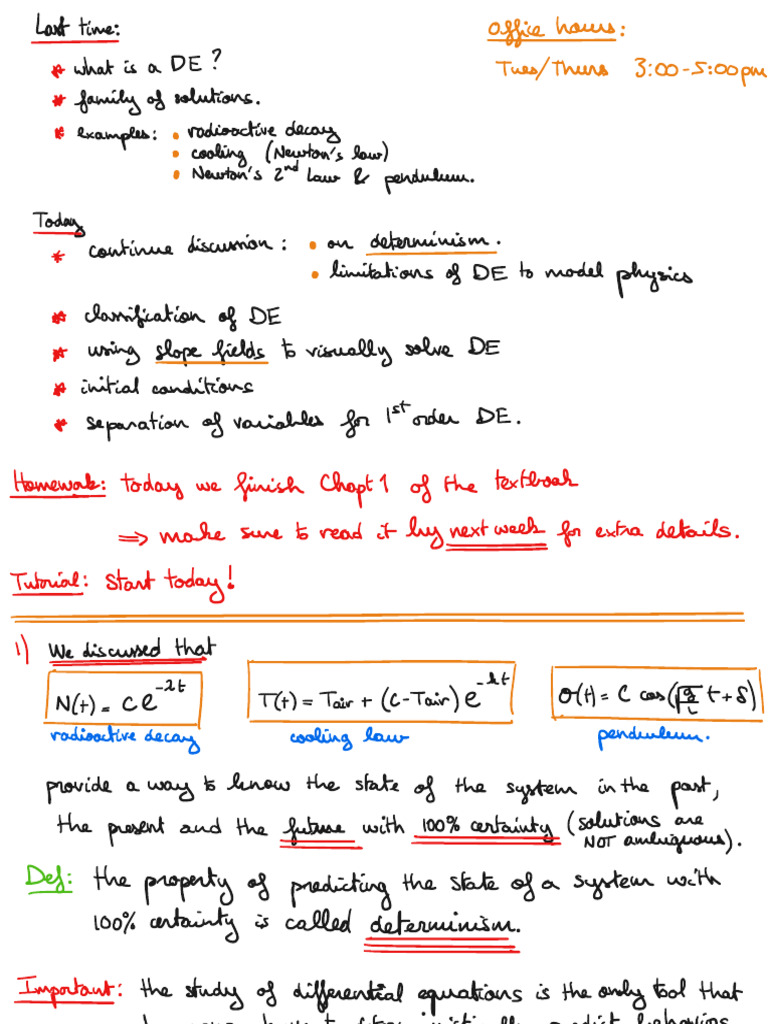 Last time:
Office hours:
Tues/Thurs 3:00-5:00pm
* what is a DE?
* family of solutions.
* examples: • radioactive decay
• cooling (Newton's law)
• Newton's 2nd Law & pendulum.
Today
* continue discussion: • on determinism.
• limitations of DE to model physics
* classification of DE
* using slope fields to visually solve DE
* initial conditions
* separation of variables for 1st order DE.
Homework: today we finish Chapt 1 of the textbook
⇒ make sure to read it by next week for extra details.
Tutorial: Start today!
1) We discussed that
N(t) = Ce^{-λt}
T(t) = Tair + (C-Tair) e^{-kt}
θ(t) = C cos(√(g/L) t + δ)
radioactive decay
cooling law
pendulum.
provide a way to know the state of the system in the past,
the present and the future with 100% certainty (solutions are
NOT ambiguous).
Def: the property of predicting the state of a system with
100% certainty is called determinism.
Important: the study of differential equations is the only tool that